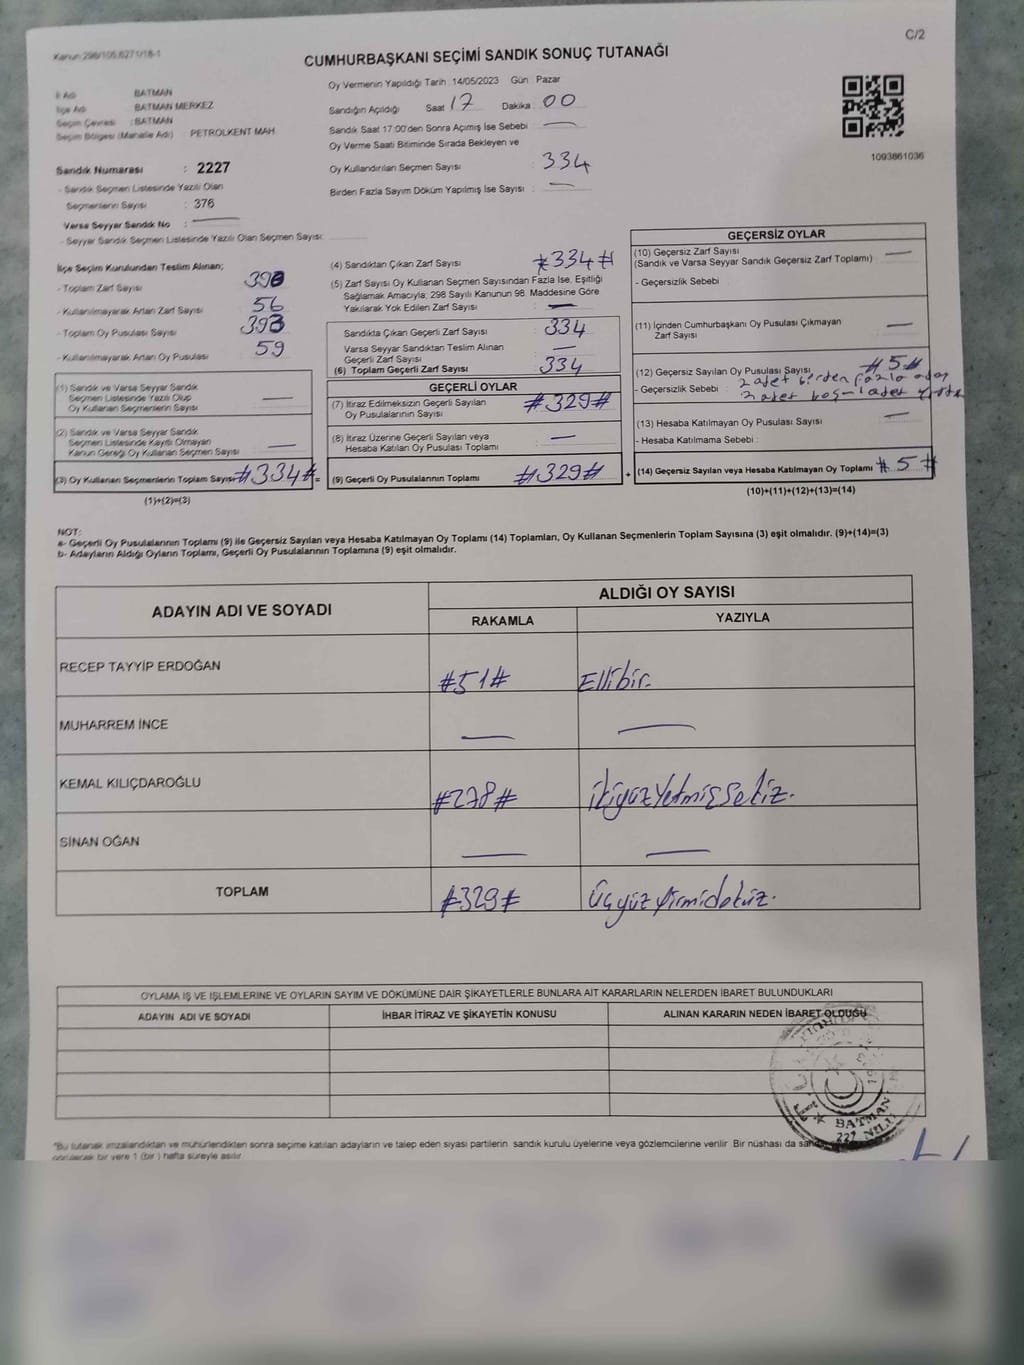 Kanun:298/105,6271/18-1
C/2
CUMHURBAŞKANI SEÇİMİ SANDIK SONUÇ TUTANAĞI
İl Adı BATMAN
İlçe Adı BATMAN MERKEZ
Seçim Çevresi : BATMAN
Seçim Bölgesi (Mahalle Adı) : PETROLKENT MAH.
Sandık Numarası : 2227
- Sandık Seçmen Listesinde Yazılı Olan
Seçmenlerin Sayısı : 376
Varsa Seyyar Sandık No : —
- Seyyar Sandık Seçmen Listesinde Yazılı Olan Seçmen Sayısı:
Oy Vermenin Yapıldığı Tarih : 14/05/2023 Gün Pazar
Sandığın Açıldığı Saat 17 Dakika : 00
Sandık Saat 17:00'den Sonra Açımış İse Sebebi —
Oy Verme Saati Bitiminde Sırada Bekleyen ve
Oy Kullandırılan Seçmen Sayısı : 334
Birden Fazla Sayım Döküm Yapılmış İse Sayısı : —
1093861036
İlçe Seçim Kurulundan Teslim Alınan;
- Toplam Zarf Sayısı
- Kullanılmayarak Artan Zarf Sayısı 56
- Toplam Oy Pusulası Sayısı 393
- Kullanılmayarak Artan Oy Pusulası 59
(1) Sandık ve Varsa Seyyar Sandık
Seçmen Listesinde Yazılı Olup
Oy Kullanan Seçmenlerin Sayısı —
(2) Sandık ve Varsa Seyyar Sandık
Seçmen Listesinde Kayıtlı Olmayan
Kanun Gereği Oy Kullanan Seçmen Sayısı —
(3) Oy Kullanan Seçmenlerin Toplam Sayısı #334# =
(1)+(2)=(3)
(4) Sandıktan Çıkan Zarf Sayısı #334#
(5) Zarf Sayısı Oy Kullanan Seçmen Sayısından Fazla İse, Eşitliği
Sağlamak Amacıyla; 298 Sayılı Kanunun 98. Maddesine Göre
Yakılarak Yok Edilen Zarf Sayısı : —
Sandıkta Çıkan Geçerli Zarf Sayısı 334
Varsa Seyyar Sandıktan Teslim Alınan
Geçerli Zarf Sayısı —
(6) Toplam Geçerli Zarf Sayısı 334
GEÇERLİ OYLAR
(7) İtiraz Edilmeksizin Geçerli Sayılan
Oy Pusulalarının Sayısı #329#
(8) İtiraz Üzerine Geçerli Sayılan veya
Hesaba Katılan Oy Pusulası Toplamı —
(9) Geçerli Oy Pusulalarının Toplamı #329# +
GEÇERSİZ OYLAR
(10) Geçersiz Zarf Sayısı —
(Sandık ve Varsa Seyyar Sandık Geçersiz Zarf Toplamı)
- Geçersizlik Sebebi :
(11) İçinden Cumhurbaşkanı Oy Pusulası Çıkmayan
Zarf Sayısı —
(12) Geçersiz Sayılan Oy Pusulası Sayısı #5#
- Geçersizlik Sebebi : 2 adet birden fazla aday
2 adet boş 1 adet
(13) Hesaba Katılmayan Oy Pusulası Sayısı —
- Hesaba Katılmama Sebebi :
(14) Geçersiz Sayılan veya Hesaba Katılmayan Oy Toplamı #5#
(10)+(11)+(12)+(13)=(14)
NOT:
a- Geçerli Oy Pusulalarının Toplamı (9) ile Geçersiz Sayılan veya Hesaba Katılmayan Oy Toplamı (14) Toplamları, Oy Kullanan Seçmenlerin Toplam Sayısına (3) eşit olmalıdır. (9)+(14)=(3)
b- Adayların Aldığı Oyların Toplamı, Geçerli Oy Pusulalarının Toplamına (9) eşit olmalıdır.
ADAYIN ADI VE SOYADI
ALDIĞI OY SAYISI
RAKAMLA YAZIYLA
RECEP TAYYİP ERDOĞAN #51# Ellibir.
MUHARREM İNCE — —
KEMAL KILIÇDAROĞLU #278# ikiyüzYetmişsekiz.
SİNAN OĞAN — —
TOPLAM #329# Üçyüzyirmidokuz.
OYLAMA İŞ VE İŞLEMLERİNE VE OYLARIN SAYIM VE DÖKÜMÜNE DAİR ŞİKAYETLERLE BUNLARA AİT KARARLARIN NELERDEN İBARET BULUNDUKLARI
ADAYIN ADI VE SOYADI İHBAR İTİRAZ VE ŞİKAYETİN KONUSU ALINAN KARARIN NEDEN İBARET OLDUĞU
BATMAN
"Bu tutanak imzalandıktan ve mühürlendikten sonra seçime katılan adayların ve talep eden siyasi partilerin sandık kurulu üyelerine veya gözlemcilerine verilir. Bir nüshası da
görülecek bir yere 1 (bir) hafta süreyle asılır.